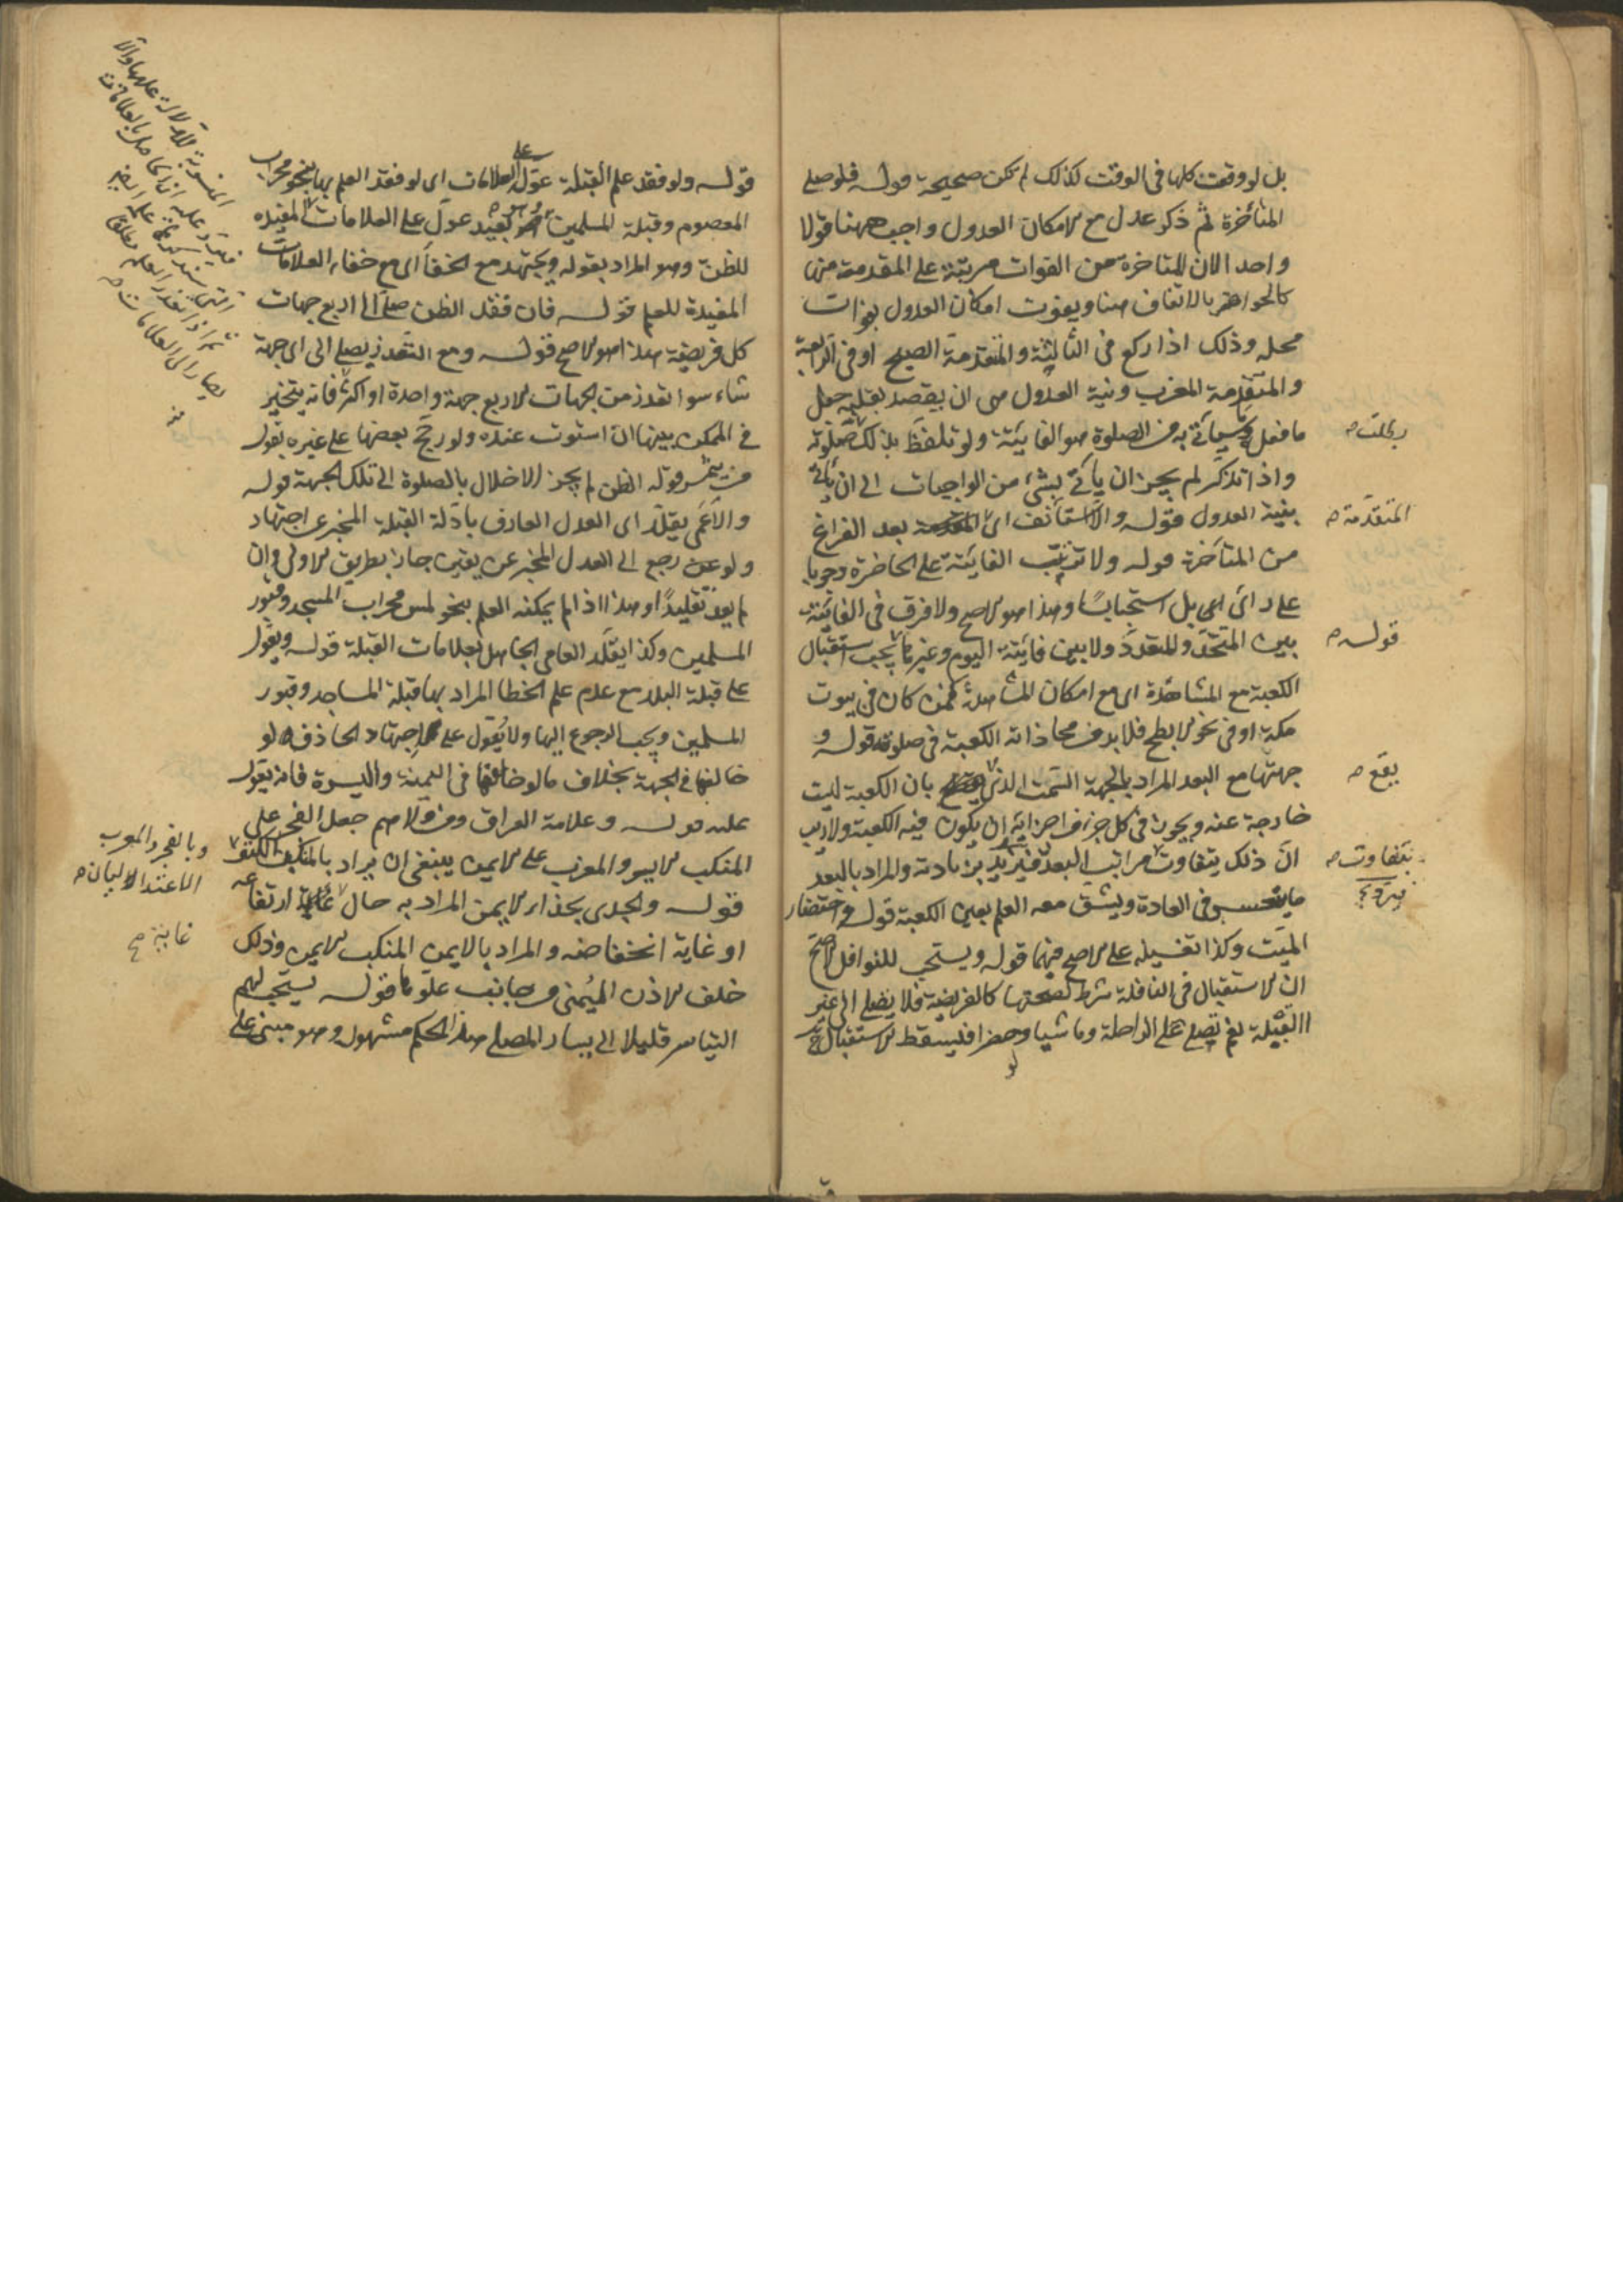 بل لو وقعت كلها فى الوقت كذلك لم تكن صحيحة قوله فلو صلى
المتأخرة ثم ذكر عدل مع الامكان العدول واجب ههنا قولا
واحدا لان المتاخرة من الفوات مرتبة على المقدمة منها
كالحواضر بالاتفاق هنا ويفوت امكان العدول بفوات
محله وذلك اذا ركع فى الثالثة والمتقدمة الصبح او فى الرابعة
والمتقدمة المغرب ونية العدول هى ان يقصد بقلبه جعل
ما فعل وسيأتى به من الصلوة هو الفايتة ولو تلفظ بذلك صلوته
بطلت
واذا تذكر لم يجز ان يأتى بشئ من الواجبات الى ان يأتى
بنية العدول قوله والا استأنف اى بعد الفراغ
المتقدمة
من المتأخرة قوله ولا تترتب الفايتة على الحاضرة وجوبا
على رأى اى بل استحبابًا وهذا هو الاصح ولا فرق فى الفايتة
بين المتحد والمتعدد ولا بين فايتة اليوم وغيرها يجب استقبال
قوله
الكعبة مع المشاهدة اى مع امكان المشاهدة كمن كان فى بيوت
مكة او فى نحو الابطح فلا بد من محاذاته الكعبة فى صلوته قوله و
جهتها مع البعد المراد بالجهة السمت الذى بان الكعبة ليست
يقع
خارجة عنه ويجوز فى كل جزء من اجزائه ان يكون فيه الكعبة ولا ريب
ان ذلك يتفاوت مراتب البعد فيزيد بزيادته والمراد بالبعد
بتفاوت
ما فى العادة ويشق معه العلم بعين الكعبة قوله واحتضار
الميت وكذا تغسيله على الاصح فيهما قوله ويستحب للنوافل الاصح
ان الاستقبال فى النافلة شرط لصحتها كالفريضة فلا يصلى الى غير
القبلة نعم يصلى على الراحلة وماشيا وحضرا فيسقط الاستقبال ح
قوله ولو فقد علم القبلة عوّل على العلامات اى لو فقد العلم بها بنحو محراب
المعصوم وقبلة المسلمين عوّل على العلامات المفيده
للظن وهو المراد بقوله ويجتهد مع الخفاء اى مع خفاء العلامات
المفيدة للعلم قوله فان فقد الظن صلى الى اربع جهات
كل فريضة هذا هو الاصح قوله ومع التعذر يصلى الى اى جهة
شاء سوا تعذر من الجهات الاربع جهة واحدة او اكثر فانه يتخير
فى الممكن بينها ان استوت عنده ولو رجح بعضها على غيره بقول
من يثمر قوله الظن لم يجز الاخلال بالصلوة الى تلك الجهة قوله
والاعمى يقلّد اى العدل العارف بادلة القبلة المخبر عن اجتهاد
ولو رجع الى العدل المخبر عن يقين جاز بطريق الاولى وان
لم يعد تقليدًا وهذا اذا لم يمكنه العلم بنحو لمس محراب المسجد وقبور
المسلمين وكذا يقلّد العامى الجاهل بعلامات القبلة قوله ويعول
على قبلة البلد مع عدم علم الخطا المراد بها قبلة المساجد وقبور
المسلمين ويجب الرجوع اليها ولا يعول على اجتهاد الحاذق لو
خالفها فى الجهة بخلاف ما لو خالفها فى اليمنة واليسرة فانه يعول
عليه قوله وعلامة العراق ومن والاهم جعل الفجر على
المنكب الايسر والمغرب على الايمن ينبغى ان يراد بالمنكب الكتف
وبالفجر والمغرب
الاعتداليان
قوله والجدى بحذاء الايمن المراد به حال غاية ارتفاعه
غاية صح
او غاية انخفاضه والمراد بالايمن المنكب الايمن وذلك
خلف الاذن اليمنى من جانب علوها قوله يستحب لهم
التياسر قليلا الى يسار المصلى هذا الحكم مشهور وهو مبنى على
المنصوبة للدلالة عليها والا
ثم اذا تعذر العلم مطلقا
يصار الى العلامات